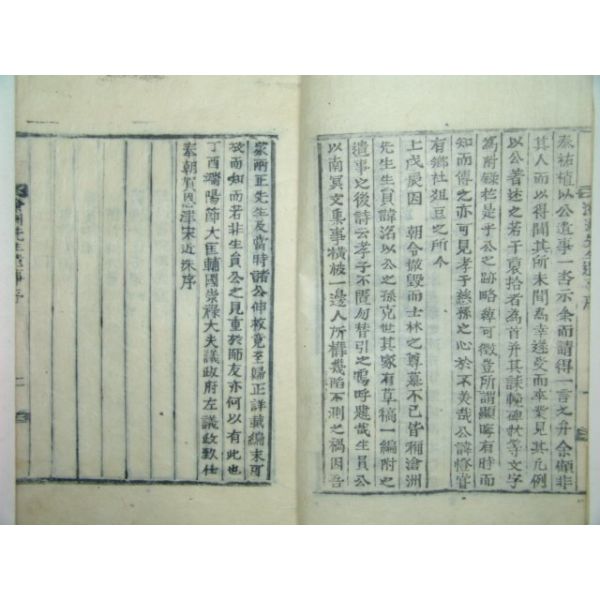 泰祐植以公遺事一沓示余而請得一言之弁余顧非
其人而以得聞其所未聞為幸遂受而卒業見其凡例
以公著述之若干裒拾者為首并其誄輓碑狀等文字
為附錄於是乎公之跡略痺可徵豈所謂顯晦有時而
知而傳之亦可見孝子慈孫之心於不美哉公諱憕嘗
有鄉社俎豆之所今
上戊辰因 朝令撤毀而士林之尊慕不已皆稱滄洲
先生生員諱洺以公之孫克世其家有草稿一編附之
遺事之後詩云孝子不匱勿替引之嗚呼韙哉生員公
以南冥文集事橫被一邊人所構幾陷不測之禍因吾
家兩正先生及當時諸公伸救竟至歸正詳載編末可
按而知而若非生員公之見重於師友亦何以有此也
丁酉端陽節大匡輔國崇祿大夫議政府左議政致仕
奉朝賀恩津宋近洙序
滄洲先生遺事序